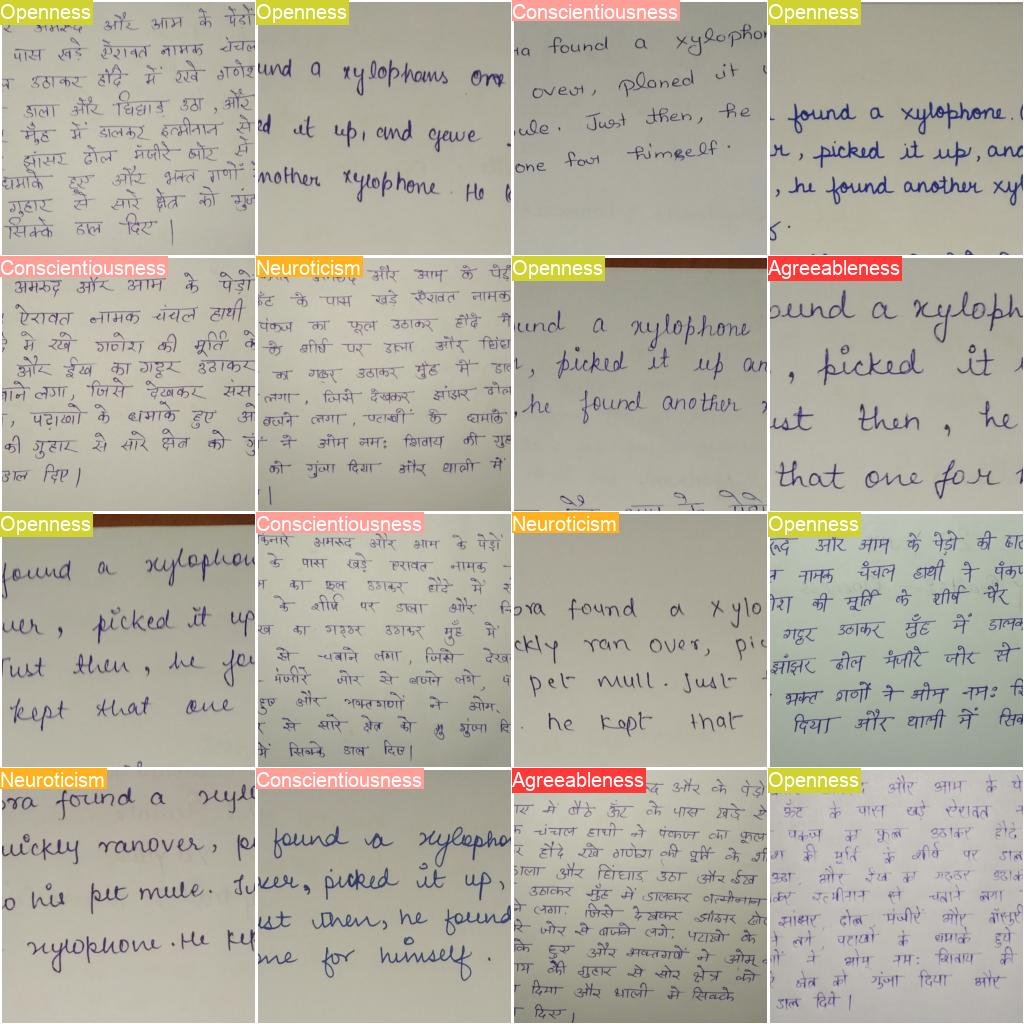 Openness
और आम के पेड़ों
पास खड़े ऐरावत नामक चंचल
उठाकर हौदे में रखे गणेश
डाला और चिंघाड़ उठा, और
मुँह में डालकर इत्मीनान से
झांसर ढोल मंजीरे जोर से
धमाके हुए और भक्त गणों
गुहार से सारे क्षेत्र को गुंज
सिक्के डाल दिए |
Openness
und a xylophans one
ed it up, and gave
nother xylophone. He k
Conscientiousness
ra found a xylophon
over, planed it
ule. Just then, he
one for himself.
Openness
found a xylophone.
r, picked it up, and
, he found another xyl
Conscientiousness
अमरुद और आम के पेड़ो
ऐरावत नामक चंचल हाथी
मे रखे गणेश की मूर्ति के
और ईख का गट्ठर उठाकर
बाने लगा, जिसे देखकर
, पटाखो के धमाके हुए ओ
की गुहार से सारे क्षेत्र को गुं
डाल दिए |
Neuroticism
और आम के पेड़
ऊँट के पास खड़े ऐरावत नामक
पंकज का फूल उठाकर हौदे मे
के शीर्ष पर डाला और चिंघा
का गट्ठर उठाकर मुँह मे डाल
लगा, जिसे देखकर झांझर ढोल
बजने लगा, के धमाके
ने ओम नम: शिवाय की गुह
को गुंजा दिया और थाली में
|
Openness
und a xylophone
, picked it up an
, he found another x
Agreeableness
ound a xyloph
, picked it
ust then, he
that one for
Openness
found a xylophon
ver, picked it up
Just then, he fou
kept that one
Conscientiousness
किनारे अमरूद और आम के पेड़ों
के पास खड़े एरावत नामक
का फूल उठाकर हौदे में
के शीर्ष पर डाला और
ख का गट्ठर उठाकर मुँह में
से चबाने लगा, जिसे देख
मंजीरे जोर से बजने लगे, प
हुए और भक्तगणों ने ओम
से सारे क्षेत्र को गुंजा दि
में सिक्के डाल दिए |
Neuroticism
ora found a xylo
ckly ran over, pic
pet mull. Just
. he kept that
Openness
रूद और आम के पेड़ो की
नामक चंचल हाथी ने पंकज
की मूर्ति के शीर्ष पैर
गट्ठर उठाकर मुँह में डालक
झांझर ढोल मंजीरे जोर से
भक्त गणों ने ओम नम: शि
दिया और थाली में सिक
Neuroticism
ora found a xyl
uickly ranover, p
o his pet mule. Ju
xylophone. He kep
Conscientiousness
found a xylopho
ver, picked it up,
ust then, he found
me for himself.
Agreeableness
द और के पेड़ो
में बैठे ऊँट के पास खड़े ऐ
चंचल हाथी ने पंकज का फूल
हौदे रखे गणेश की मूर्ति के शी
डाला और चिंघाड़ उठा और ईख
उठाकर मुँह में डालकर
लगा. जिसे देखकर झांझर ढो
जोर से बजने लगे. पटाखो के
के हुए और भक्तगणों ने ओम
की गुहार से सारे क्षेत्र को
दिया और थाली मे सिक्के
दिए |
Openness
और आम के पे
ऊँट के पास खड़े ऐरावत
पंकज का फूल उठाकर हौदे
की मूर्ति के शीर्ष पर डाल
उठा, और ईख का गट्ठर उठाक
कर से चबाने लगा
झांझर, ढोल, मंजीरें और बाँसुरी
लगे, पटाखों के धमाके हुये
ने ओम नम: शिवाय की
क्षेत्र को गुंजा दिया और
डाल दिये |